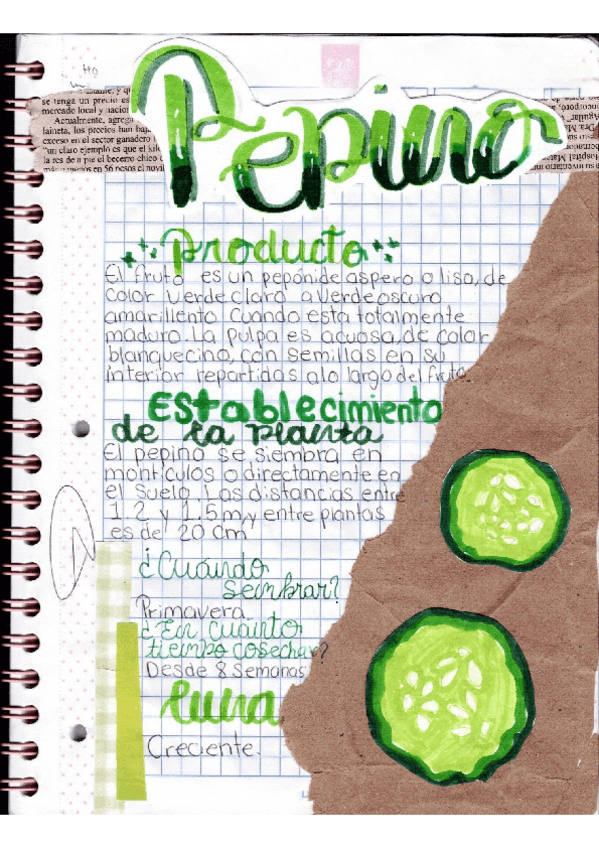 Pepino
se tenga un precio es
mercado local y nacion
Actualmente, agreg
laineta, los precios han baja
exceso en el sector ganadero
"un claro ejemplo es que el kil
Producto
El fruto es un pepónide aspero o liso, de
color verde claro a verde oscuro
amarillento cuando esta totalmente
maduro. La pulpa es acuosa, de color
blanquecino, con semillas en su
interior repartidas a lo largo del fruto.
Establecimiento
de la planta
El pepino se siembra en
montículos o directamente en
el suelo. Las distancias entre
1.2 y 1.5 m, y entre plantas
es de 20 cm
¿Cuándo
sembrar?
Primavera.
¿En cuánto
tiempo cosechar?
Desde 8 semanas
Luna
Creciente.